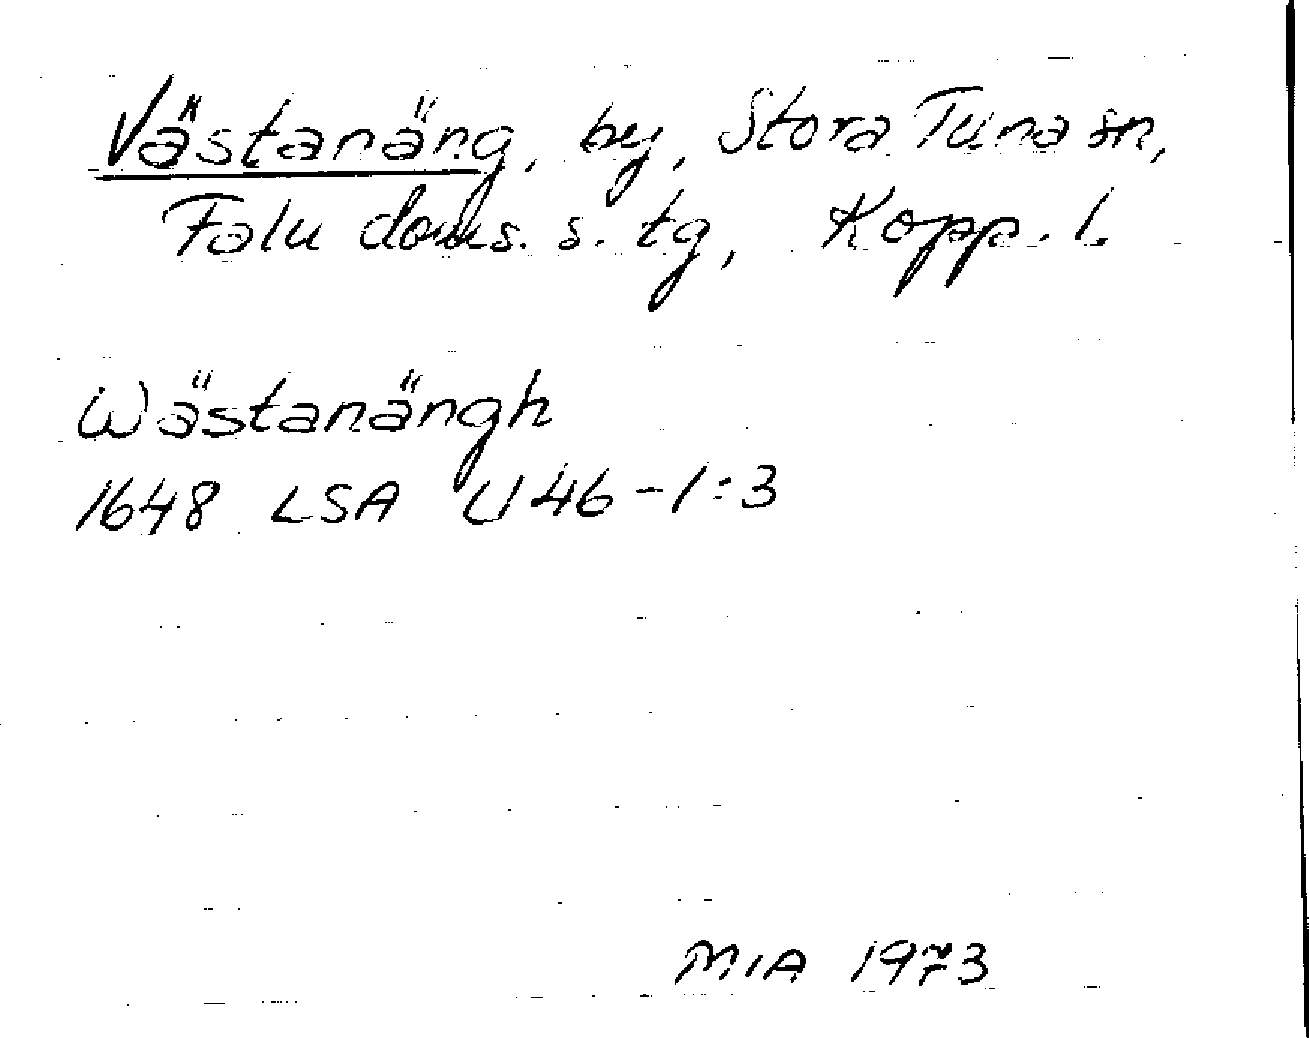 Västanäng, by, Stora Tuna sn,
Falu doms. s. tg, Kopp. l.
Wästanängh
1648 LSA U46-1:3
MIA 1973